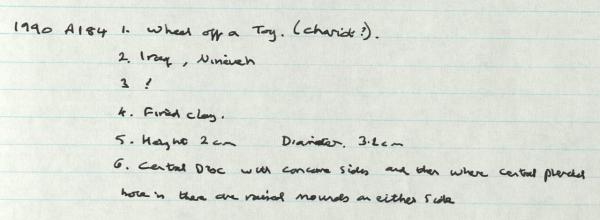 1990 A184 1. Wheel off a Toy. (Chariot?).
2. Iraq, Nineveh
3 ?
4. Fired clay.
5. Height 2cm Diameter. 3.2cm
6. Central Disc with concave sides and then where central pierced
hole is there are raised mounds on either side